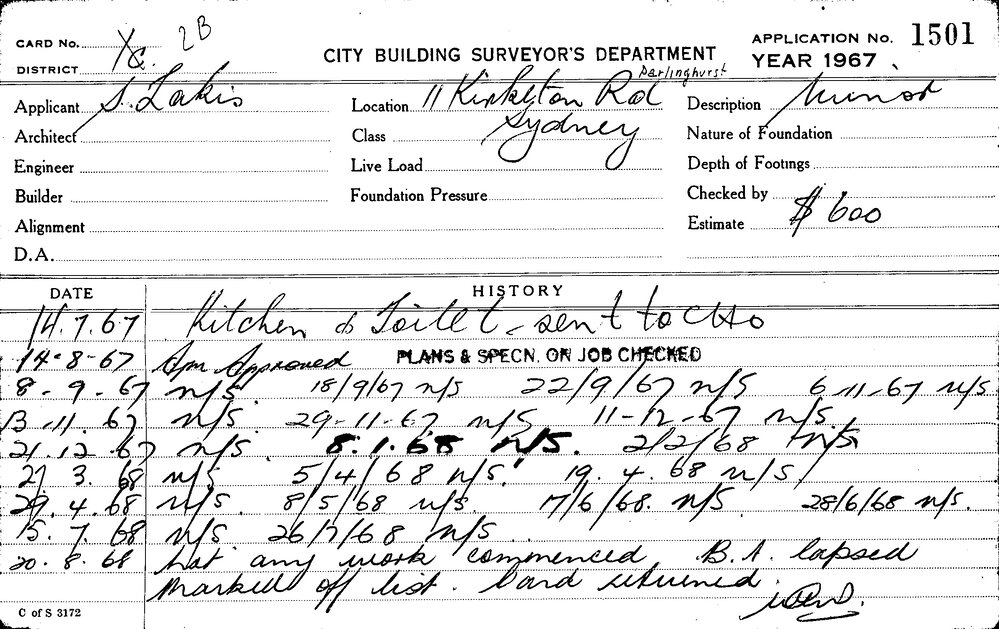 CARD No. Yc. 2B
DISTRICT
CITY BUILDING SURVEYOR'S DEPARTMENT
APPLICATION No. 1501
YEAR 1967
Applicant S. Lakis
Architect
Engineer
Builder
Alignment
D.A.
Darlinghurst
Location 11 Kirketon Rd
Sydney
Class
Live Load
Foundation Pressure
Description Minor
Nature of Foundation
Depth of Footings
Checked by
Estimate $ 600
DATE HISTORY
14.7.67 Kitchen & Toilet - sent to CHO
14-8-67 Approved PLANS & SPECN. ON JOB CHECKED
8-9-67 n/s. 18/9/67 n/s 22/9/67 n/s 6-11-67 n/s
13.11.67 n/s. 29-11-67 n/s. 11-12-67 n/s.
21.12.67 n/s. 8.1.68 n/s. 2/2/68 n/s
27 3. 68 n/s 5/4/68 n/s. 19.4.68 n/s
29.4.68 n/s. 8/5/68 n/s. 17/6/68. n/s 28/6/68 n/s.
15.7.68 n/s 26/7/68 n/s
20.8.68 Not any work commenced. B.A. lapsed
marked off list. Card returned.
C of S 3172